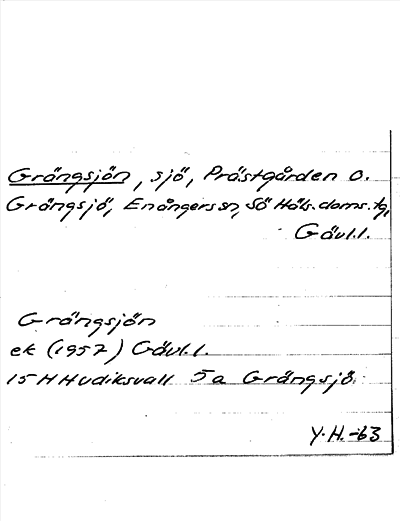 Grängsjön, sjö, Prästgården o.
Grängsjö, Enångers sn, Sö Häls. doms. tg,
Gävl.l.
Grängsjön
ek (1957) Gävl.l.
15 H Hudiksvall 5a Grängsjö.
Y.H.-63